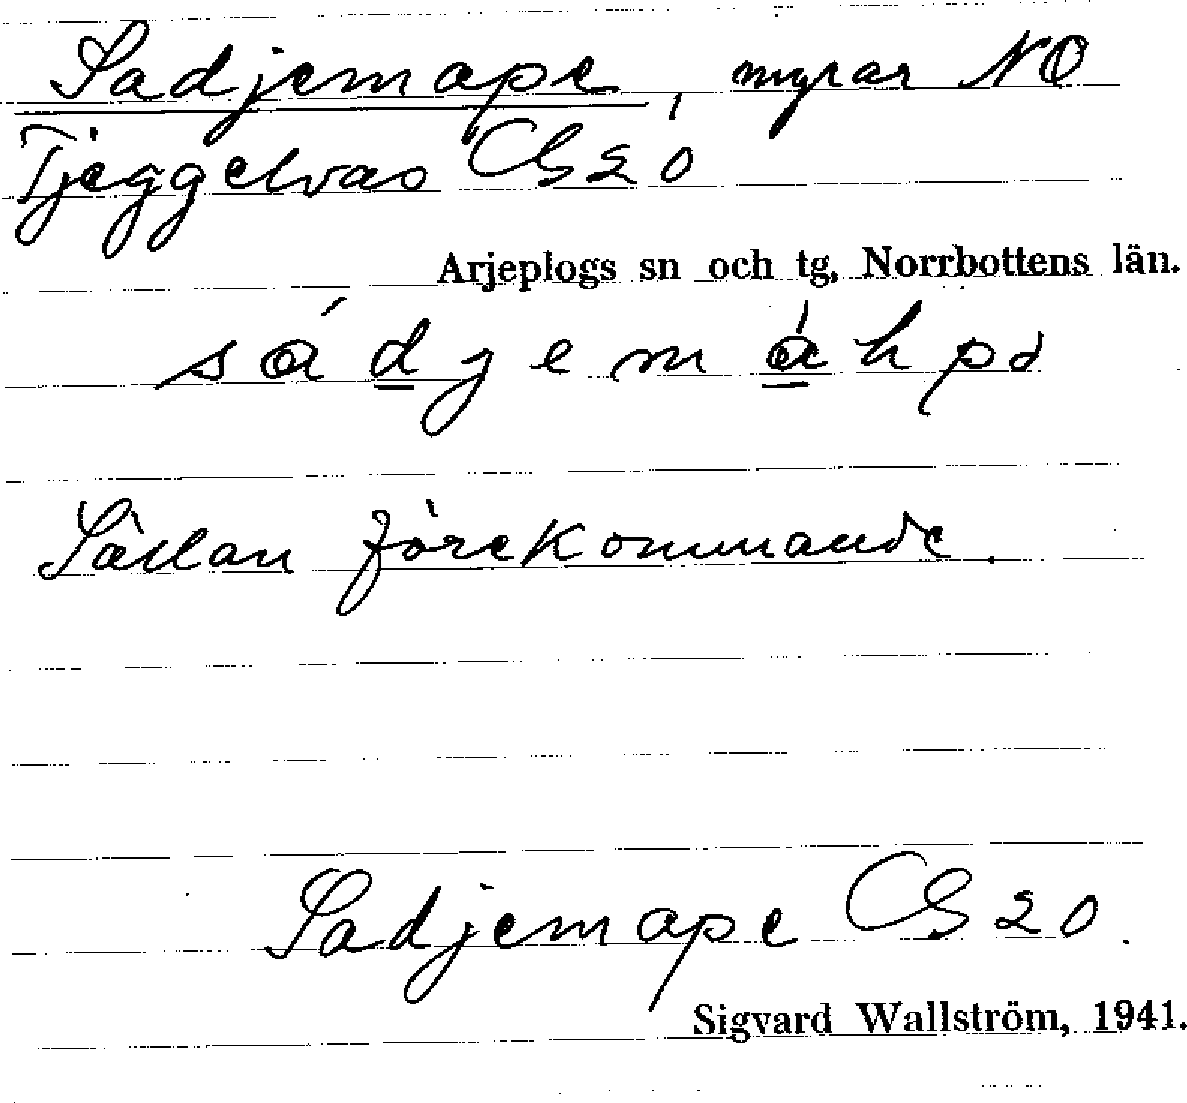 Sadjemape, myrar NO
Tjeggelvas CS 20
Arjeplogs sn och tg, Norrbottens län.
Sällan förekommande.
Sadjemape CS 20.
Sigvard Wallström, 1941.